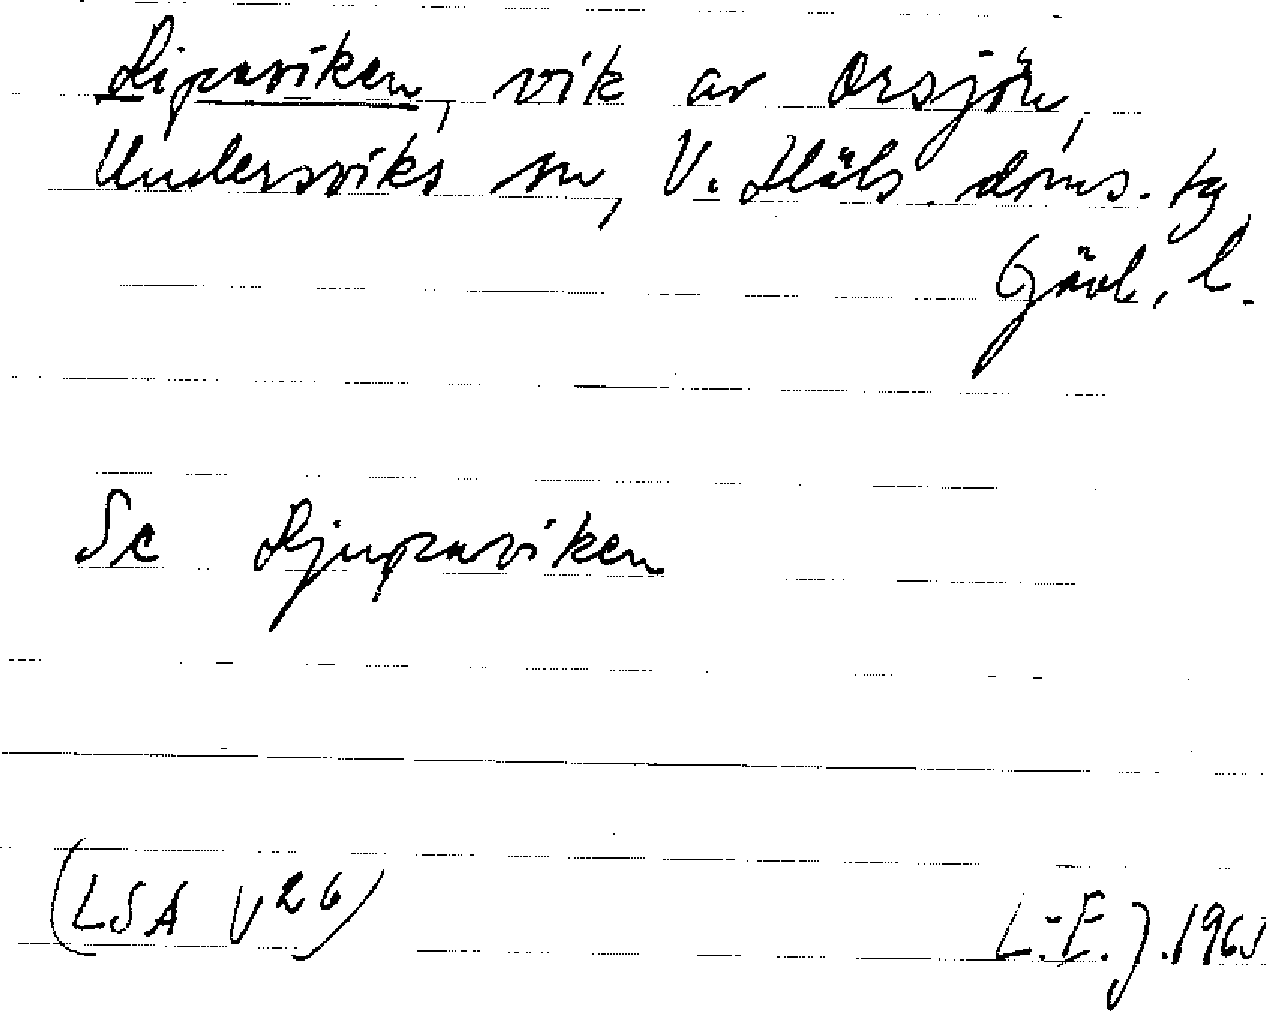 Dipaviken, vik av Orsjön,
Undersviks sn, V. Häls. doms. tg
Gävl. l.
Se Djupaviken
(LSA V26)
L.-E. J.